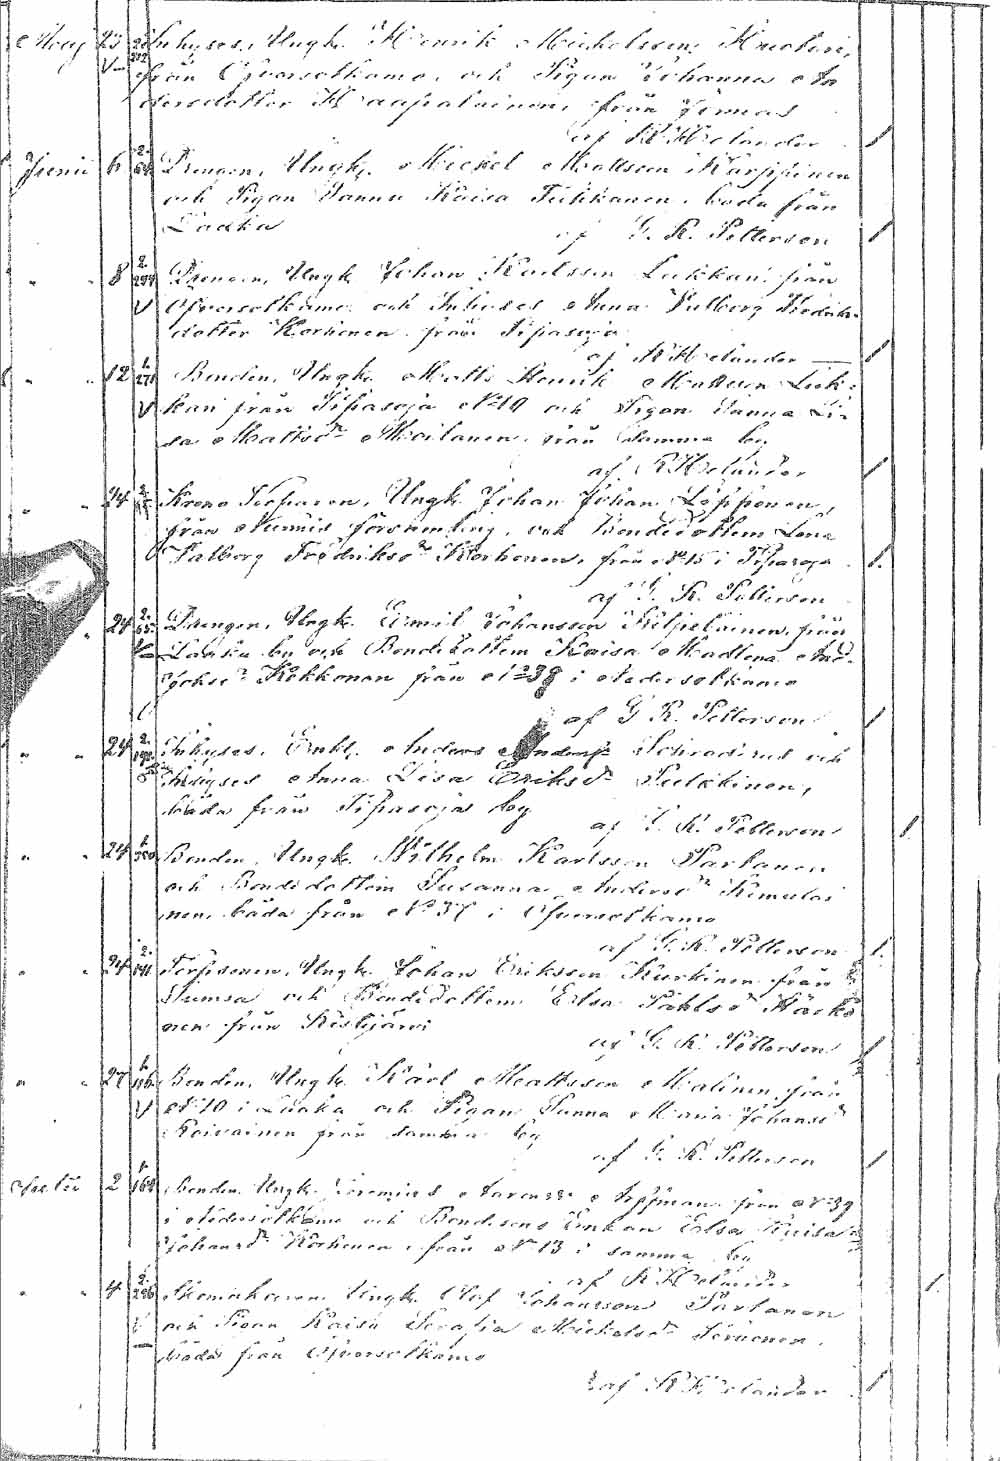 Maij 23 Inhyses, Ungk. Henrik Michelsson
från Öfversotkamo, och Pigan Johanna An
dersdotter Haapalainen, från
af K. Helander
Junii 6 Drengen, Ungk. Mickel Mattsson Karppinen
och Pigan Sanna Kaisa Tikkanen, båda från
Laaka
af G. R. Petterson
" " 8 Drengen, Ungk. Johan Karlsson Lukkari från
Öfversotkamo och Inhyses Anna Valborg Fredriks-
dotter Korhonen från Tipasoja
af K Helander
" " 12 Bonden, Ungk. Matts Henrik Mattsson Luk-
kari från Tipasoja No 10 och Pigan Sanna Li-
sa Mattsdr Moilanen, från samma by
af K Helander
" 24 Krono Torparen, Ungk. Johan Johan Lipponen,
från Nurmis församling, och bondedottern Lena
Valborg Fredriksdr Korhonen, från No 15 i Tipasoja
af G. R. Petterson
" 24 Drengen, Ungk. Emil Johansson Kilpeläinen, från
Laaka by och Bondedottern Kaisa Madlena
Kokkonen från No 38 i Nedersotkamo
af G R. Petterson
" " 24 Inhyses, Enkl. Anders Andersson Schroderus och
Inhyses Anna Lisa Eriksdr Pulkkinen,
båda från Tipasoja by
af G. R. Petterson
" " 24 Bonden, Ungk. Wilhelm Karlsson Partanen
och Bondedottern Susanna Andersdr Kemilai
nen, båda från No 37 i Öfversotkamo
af G. R. Petterson
" " 24 Torparen, Ungk. Johan Eriksson Kurkinen från
Jumsa och Bondedottern Elsa Påhlsdr Häikö
nen från Ristijärvi
af G. R. Petterson
" " 27 Bonden, Ungk. Karl Mattsson Malinen, från
No 10 i Laaka och Pigan Sanna Maria Johansdr
Koivainen från samma by
af G. R. Petterson
2 Bonden Ungk. Jeremias från No 39
i Nedersotkamo och Bondesons Enkan Elsa Kaisa
Johansdr Korhonen, från No 13 i samma by
af K Helander
" " 4 Skomakaren Ungk. Olof Johansson Partanen
och Pigan Kaisa Serafia Mickelsdr
båda från Öfversotkamo
af K Helander